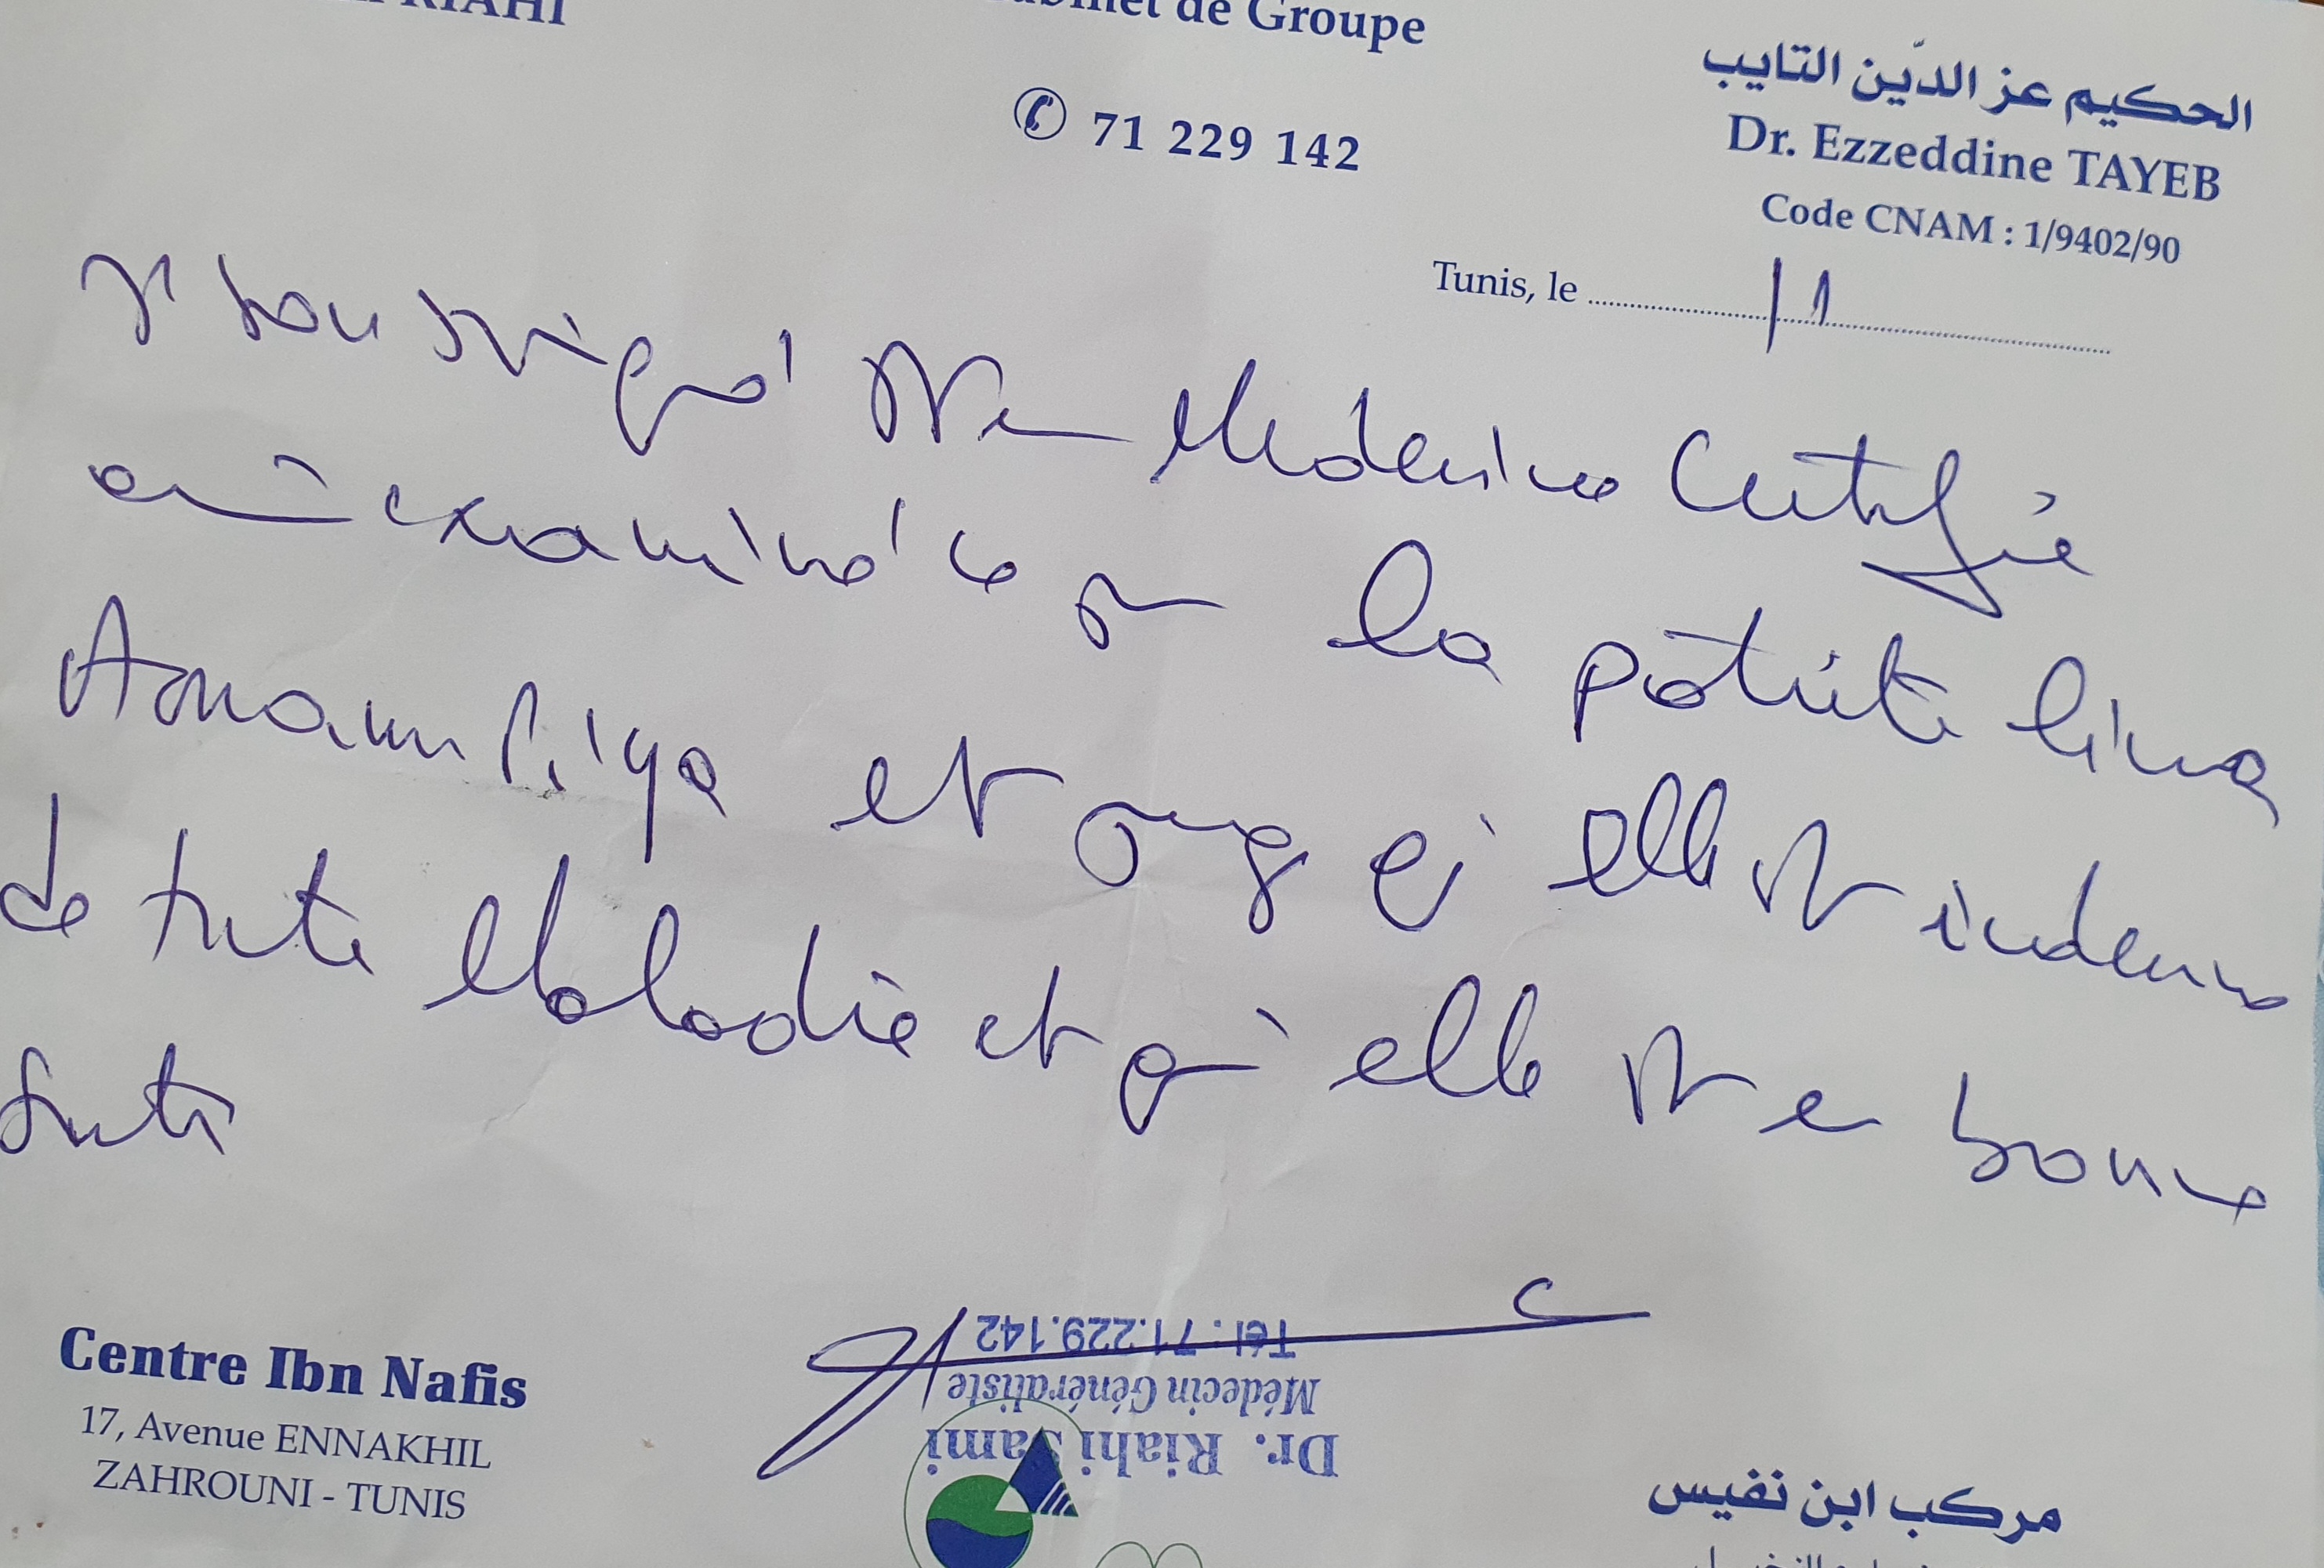 RIAHI
Cabinet de Groupe
✆ 71 229 142
الحكيم عز الدّين التايب
Dr. Ezzeddine TAYEB
Code CNAM : 1/9402/90
Tunis, le
Je soussigné Dr en Médecine Certifie
avoir examiné ce jr la petite lina
et elle est indemne
de toute Maladie et qu'elle est en bonne
santé
Tél : 71.229.142
Médecin Généraliste
Dr. Riahi Sami
Centre Ibn Nafis
17, Avenue ENNAKHIL
ZAHROUNI - TUNIS
مركب ابن نفيس